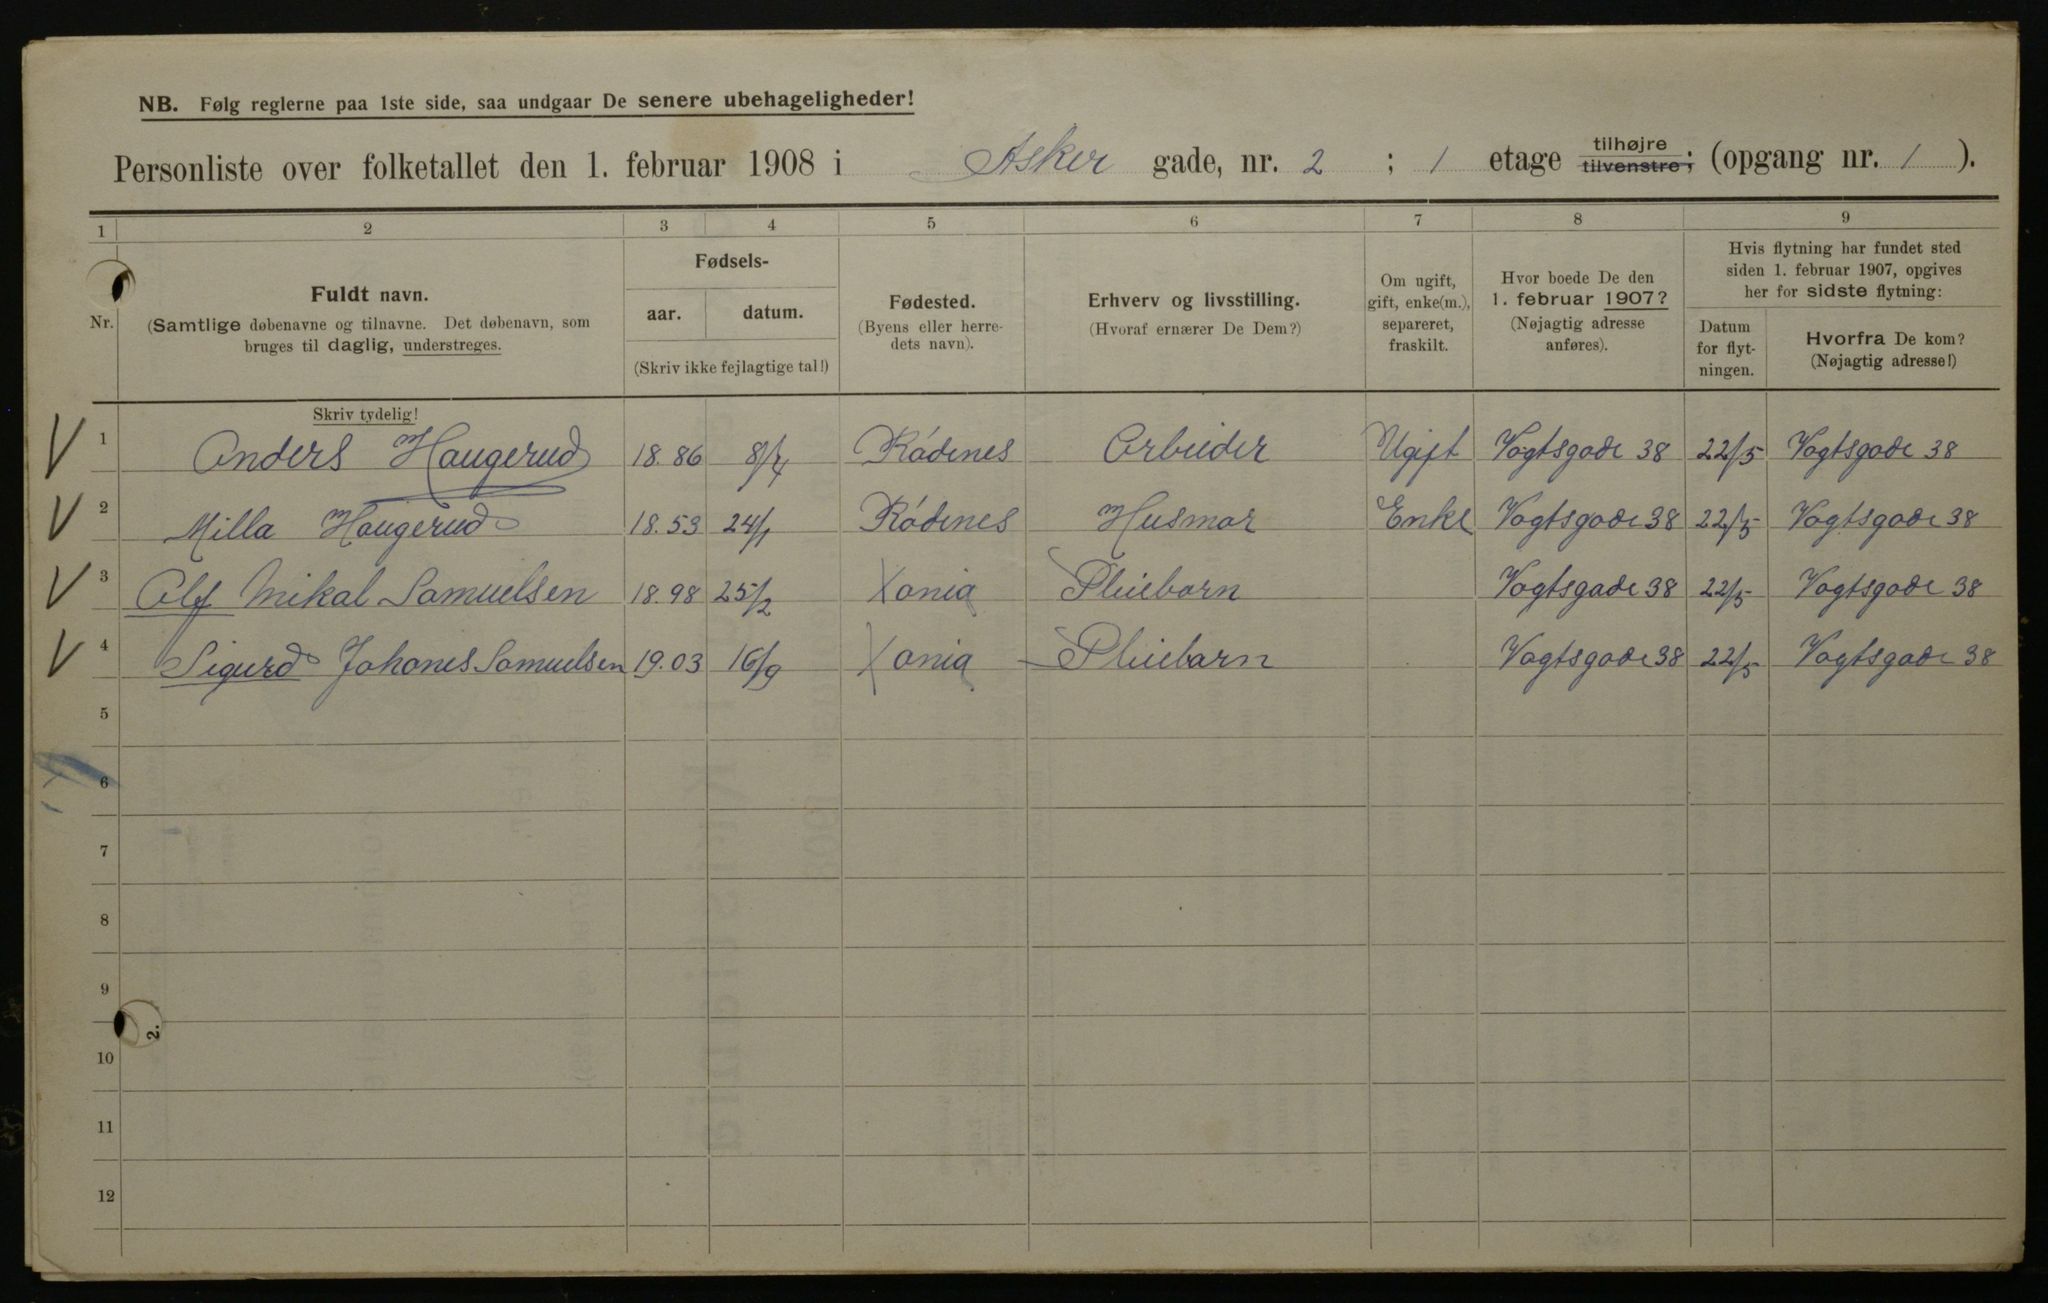 NB. Følg reglerne paa 1ste side, saa undgaar De senere ubehageligheder!
Personliste over folketallet den 1. februar 1908 i Asker gade, nr. 2 ; 1 etage tilhøjre tilvenstre; (opgang nr. 1 ).
1 2 3 4 5 6 7 8 9
Nr.
Fuldt navn.
(Samtlige døbenavne og tilnavne. Det døbenavn, som
bruges til daglig, understreges.
Fødsels-
aar. datum.
(Skriv ikke fejlagtige tal!)
Fødested.
(Byens eller herre-
dets navn).
Erhverv og livsstilling.
(Hvoraf ernærer De Dem?)
Om ugift,
gift, enke(m.),
separeret,
fraskilt.
Hvor boede De den
1. februar 1907?
(Nøjagtig adresse
anføres).
Hvis flytning har fundet sted
siden 1. februar 1907, opgives
her for sidste flytning:
Datum
for flyt-
ningen.
Hvorfra De kom?
(Nøjagtig adresse!)
Skriv tydelig!
1 Anders Haugerud 18.86 8/4 Rødenes Arbeider Ugift Vogtsgade 38 22/5 Vogtsgade 38
2 Milla Haugerud 18.53 24/1 Rødenes Husmor Enke Vogtsgade 38 22/5 Vogtsgade 38
3 Alf Mikal Samuelsen 18.98 25/2 Xania Pleiebarn Vogtsgade 38 22/5 Vogtsgade 38
4 Sigurd Johanes Samuelsen 19.03 16/9 Xania Pleiebarn Vogtsgade 38 22/5 Vogtsgade 38
5
6
7
8
9
2.
10
11
12